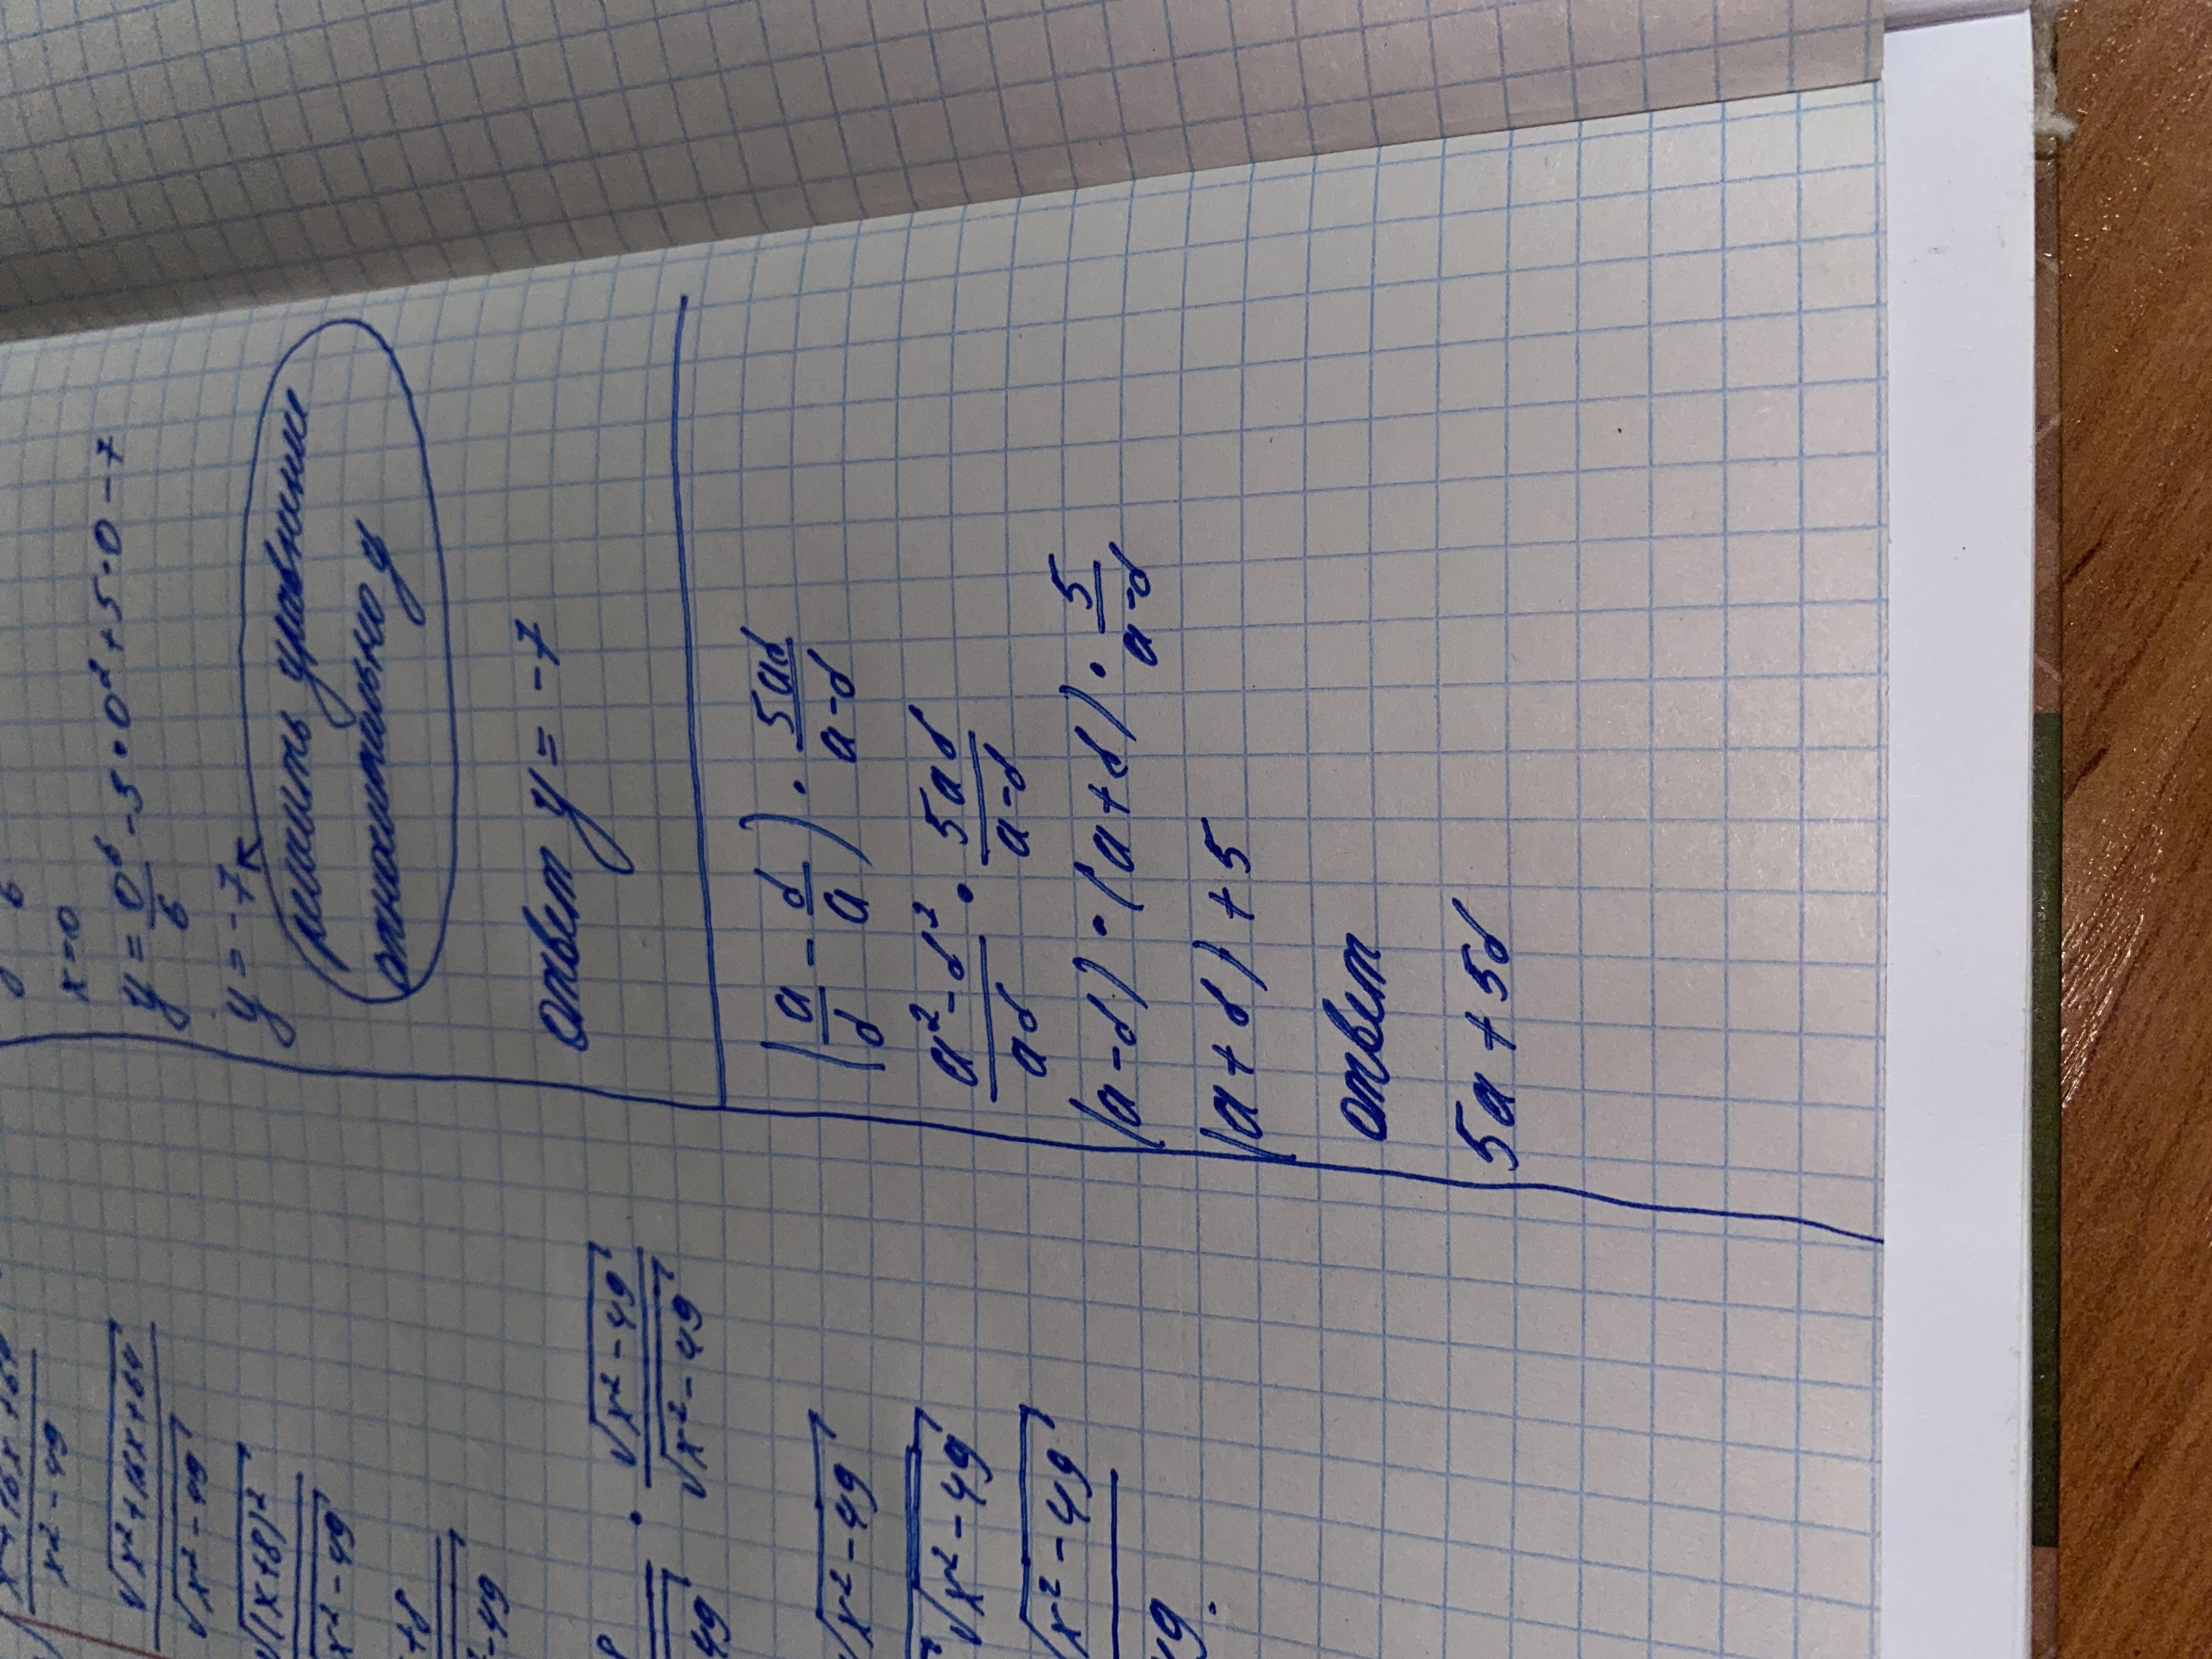 x=0
y = 0⁶/6 - 5 • 0² + 5 • 0 - 7
y = -7
решить уравнение
относительно y
ответ y = -7
(a/b - b/a) • 5ab/a-b
a² - b²/ab • 5ab/a-b
(a-b) • (a+b) • 5/a-b
(a+b) + 5
ответ
5a + 5b
x² - 49
√x²+16x+64/√x²-49
√(x+8)²/x²-49
+8/-49
• √x²-49/√x²-49
49
√x²-49
√x²-49
√x²-49
49.